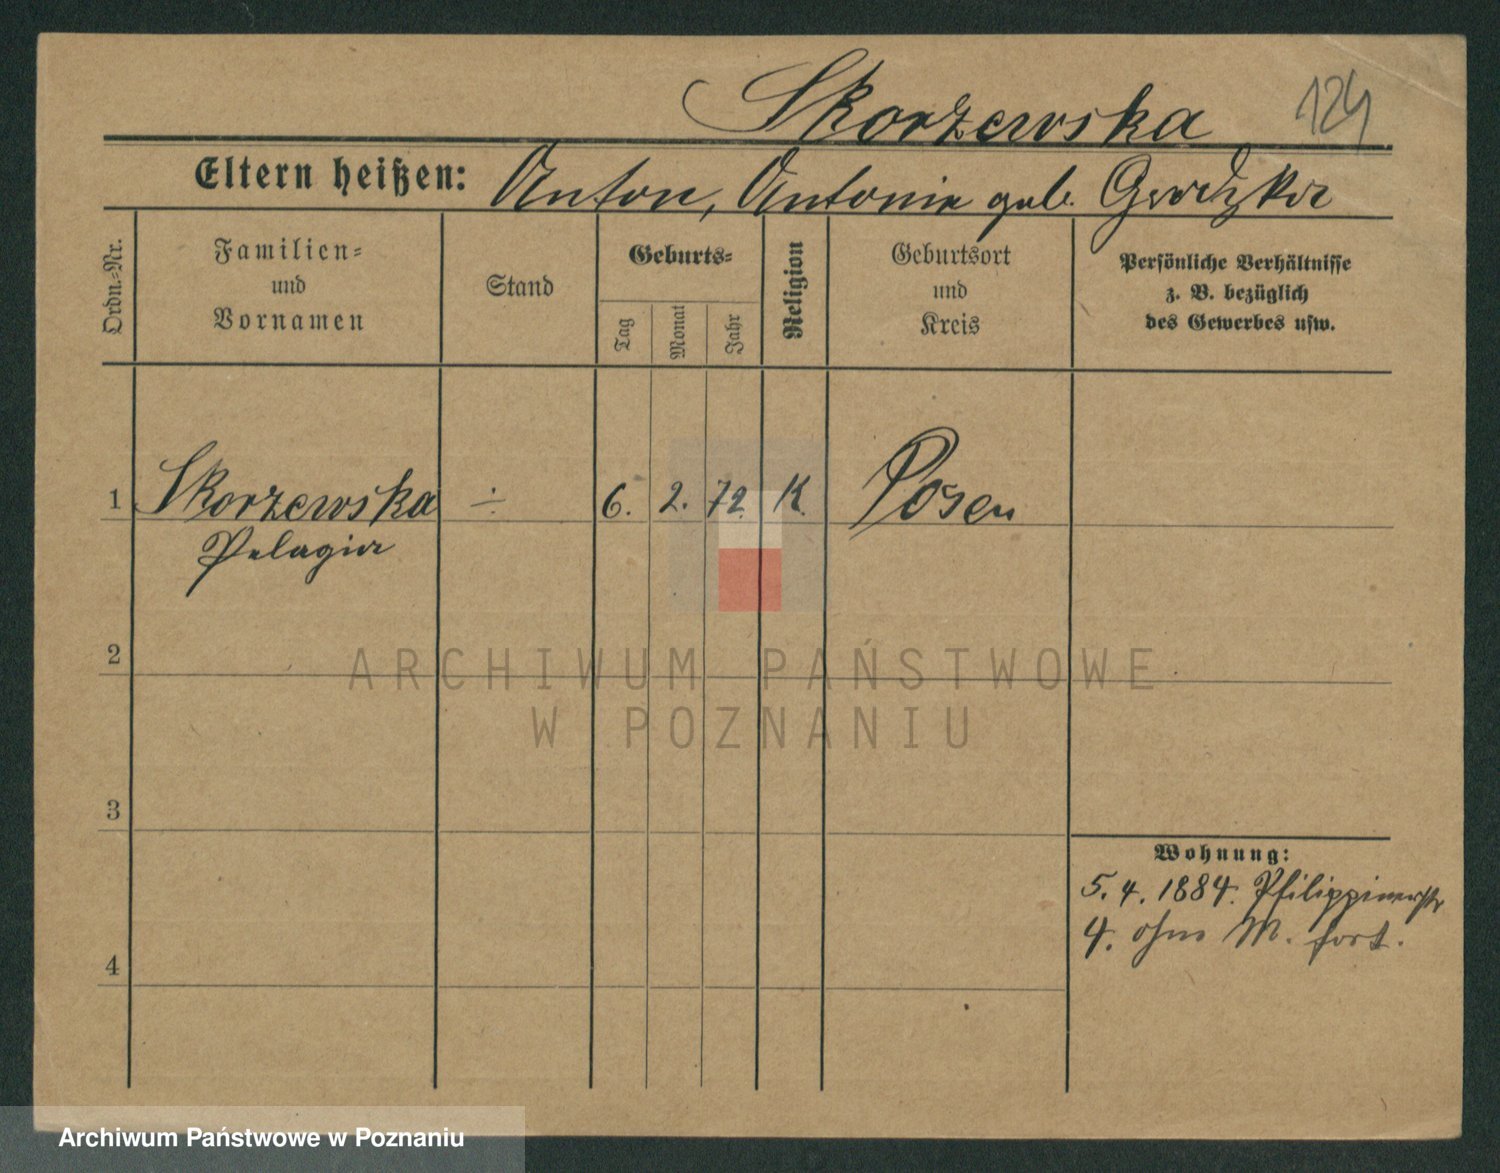 Skorzewska 124
Eltern heißen: Anton, Antonie geb. Grodzka
Ordn.-Nr.
Familien-
und
Vornamen
Stand
Geburts-
Tag
Monat
Jahr
Religion
Geburtsort
und
Kreis
Persönliche Verhältnisse
z. B. bezüglich
des Gewerbes usw.
1 Skorzewska ÷ 6. 2. 72. K. Posen
Pelagia
2
ARCHIWUM PAŃSTWOWE
W POZNANIU
3
Wohnung:
5. 4. 1884. Philippinerstr
4. ohne M. fort.
4
Archiwum Państwowe w Poznaniu